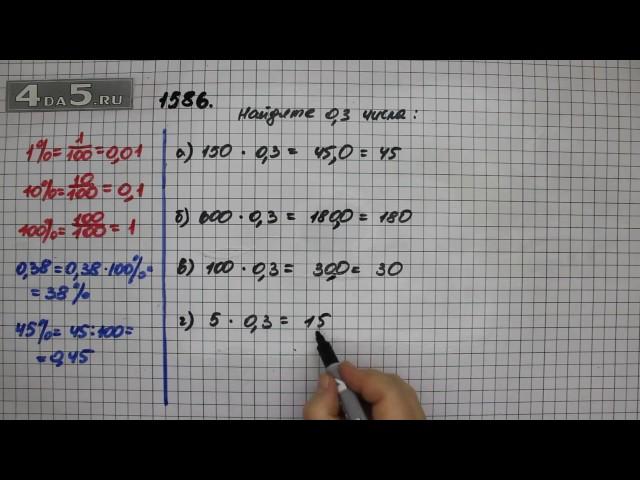 4DA5.RU
1586.
Найдите 0,3 числа:
1% = 1/100 = 0,01
10% = 10/100 = 0,1
100% = 100/100 = 1
0,38 = 0,38 · 100% =
= 38%
45% = 45 : 100 =
= 0,45
а) 150 · 0,3 = 45,0 = 45
б) 600 · 0,3 = 180,0 = 180
в) 100 · 0,3 = 30,0 = 30
г) 5 · 0,3 = 15